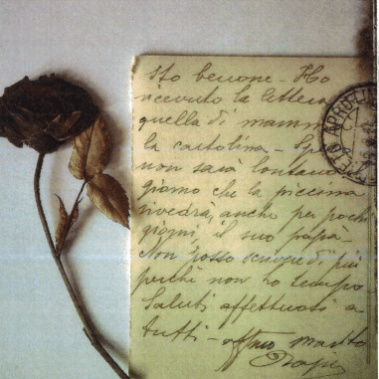 Sto benone - Ho
ricevuto la lettera
quella di mamma
la cartolina -
non sarà lontano
giorno che la piccina
rivedrà, anche per pochi
giorni, il suo papà -
Non posso scrivervi più
perchè non ho tempo
Saluti affettuosi a
tutti - marito